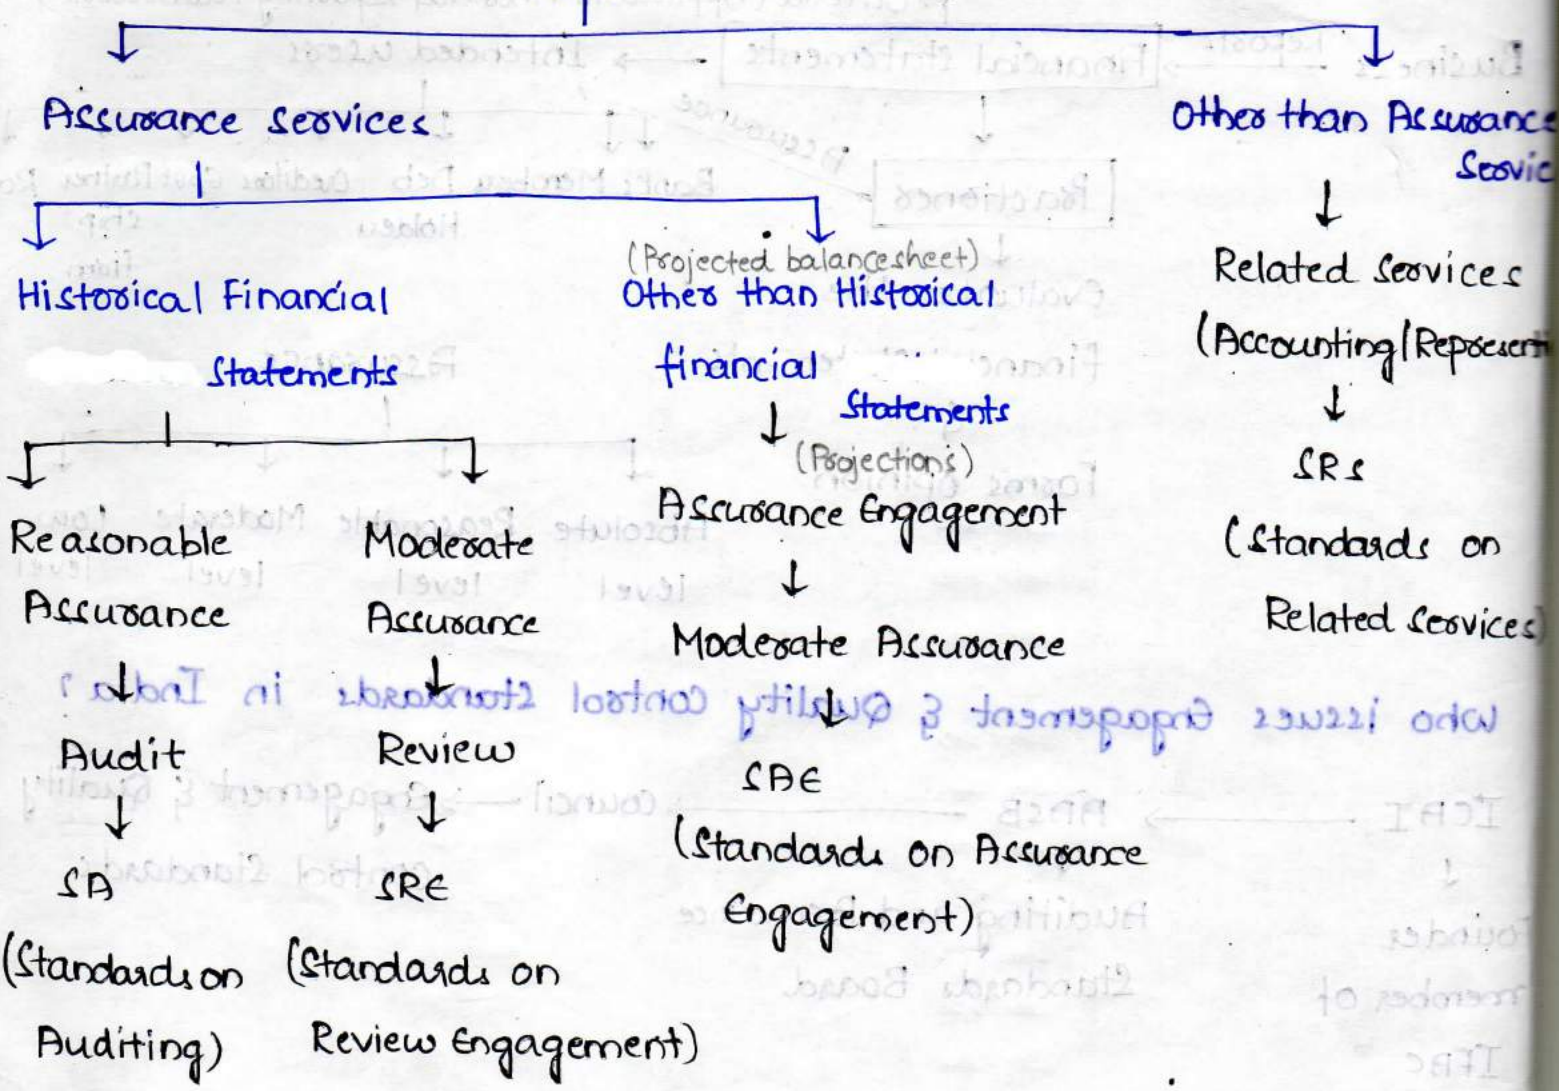 Assurance Services
Other than Assurance
Servic
Historical Financial
Statements
(Projected balancesheet)
Other than Historical
financial
Statements
(Projections)
Related Services
(Accounting/Represent
SRS
(Standards on
Related Services)
Reasonable
Assurance
Audit
SA
(Standards on
Auditing)
Moderate
Assurance
Review
SRE
(Standards on
Review Engagement)
Assurance Engagement
Moderate Assurance
SAE
(Standards on Assurance
Engagement)
Who issues Engagement & Quality Control Standards in India?